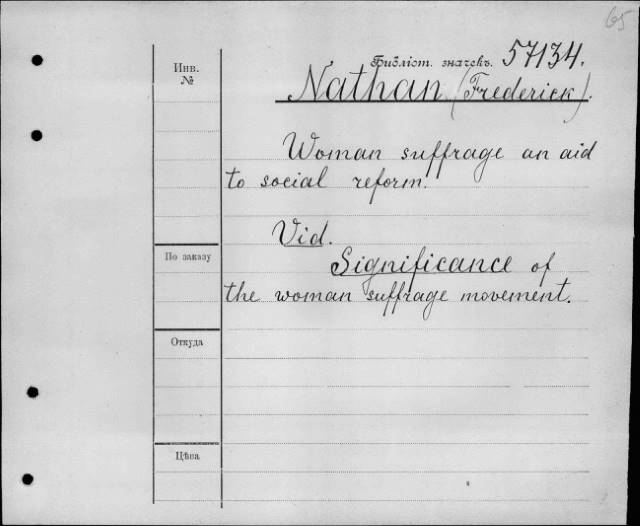 65
Инв.
№
Библіот. значекъ. 57134.
Nathan (Frederick).
Woman suffrage an aid
to social reform.
Vid.
По заказу
Significance of
the woman suffrage movement.
Откуда
Цѣна